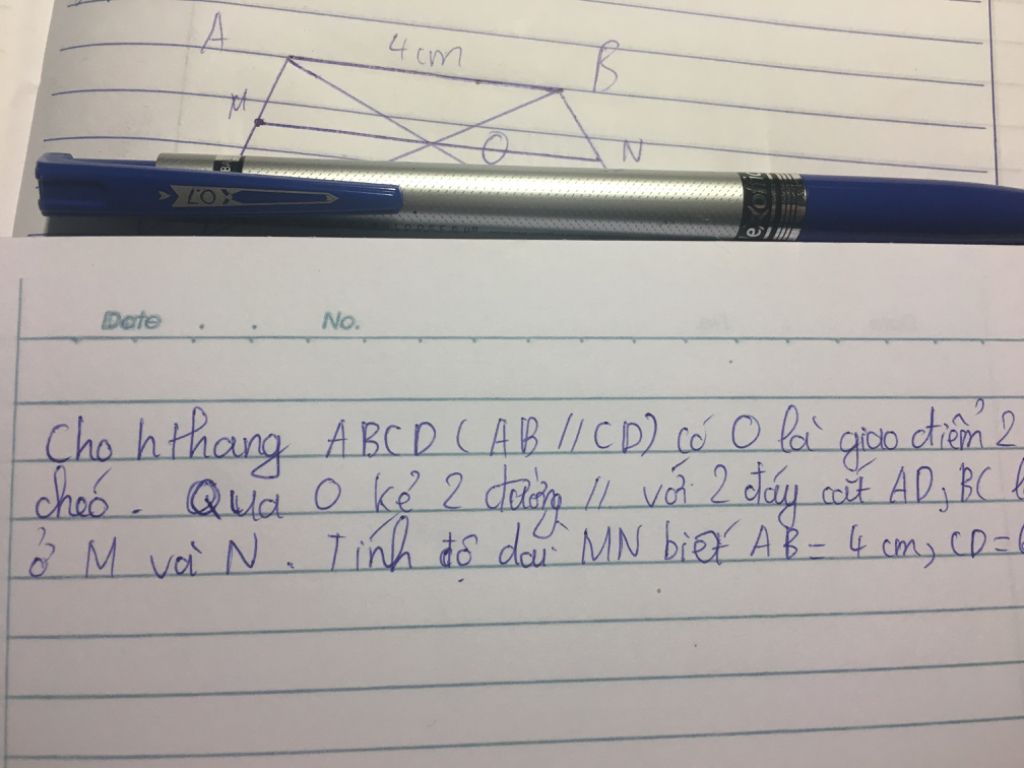 A 4cm B
M O N
LO
lexor
Date . . No.
Cho hthang ABCD (AB // CD) có O là giao điểm 2
chéo. Qua O kẻ 2 đường // với 2 đáy cắt AD, BC
ở M và N. Tính độ dài MN biết AB = 4 cm, CD =